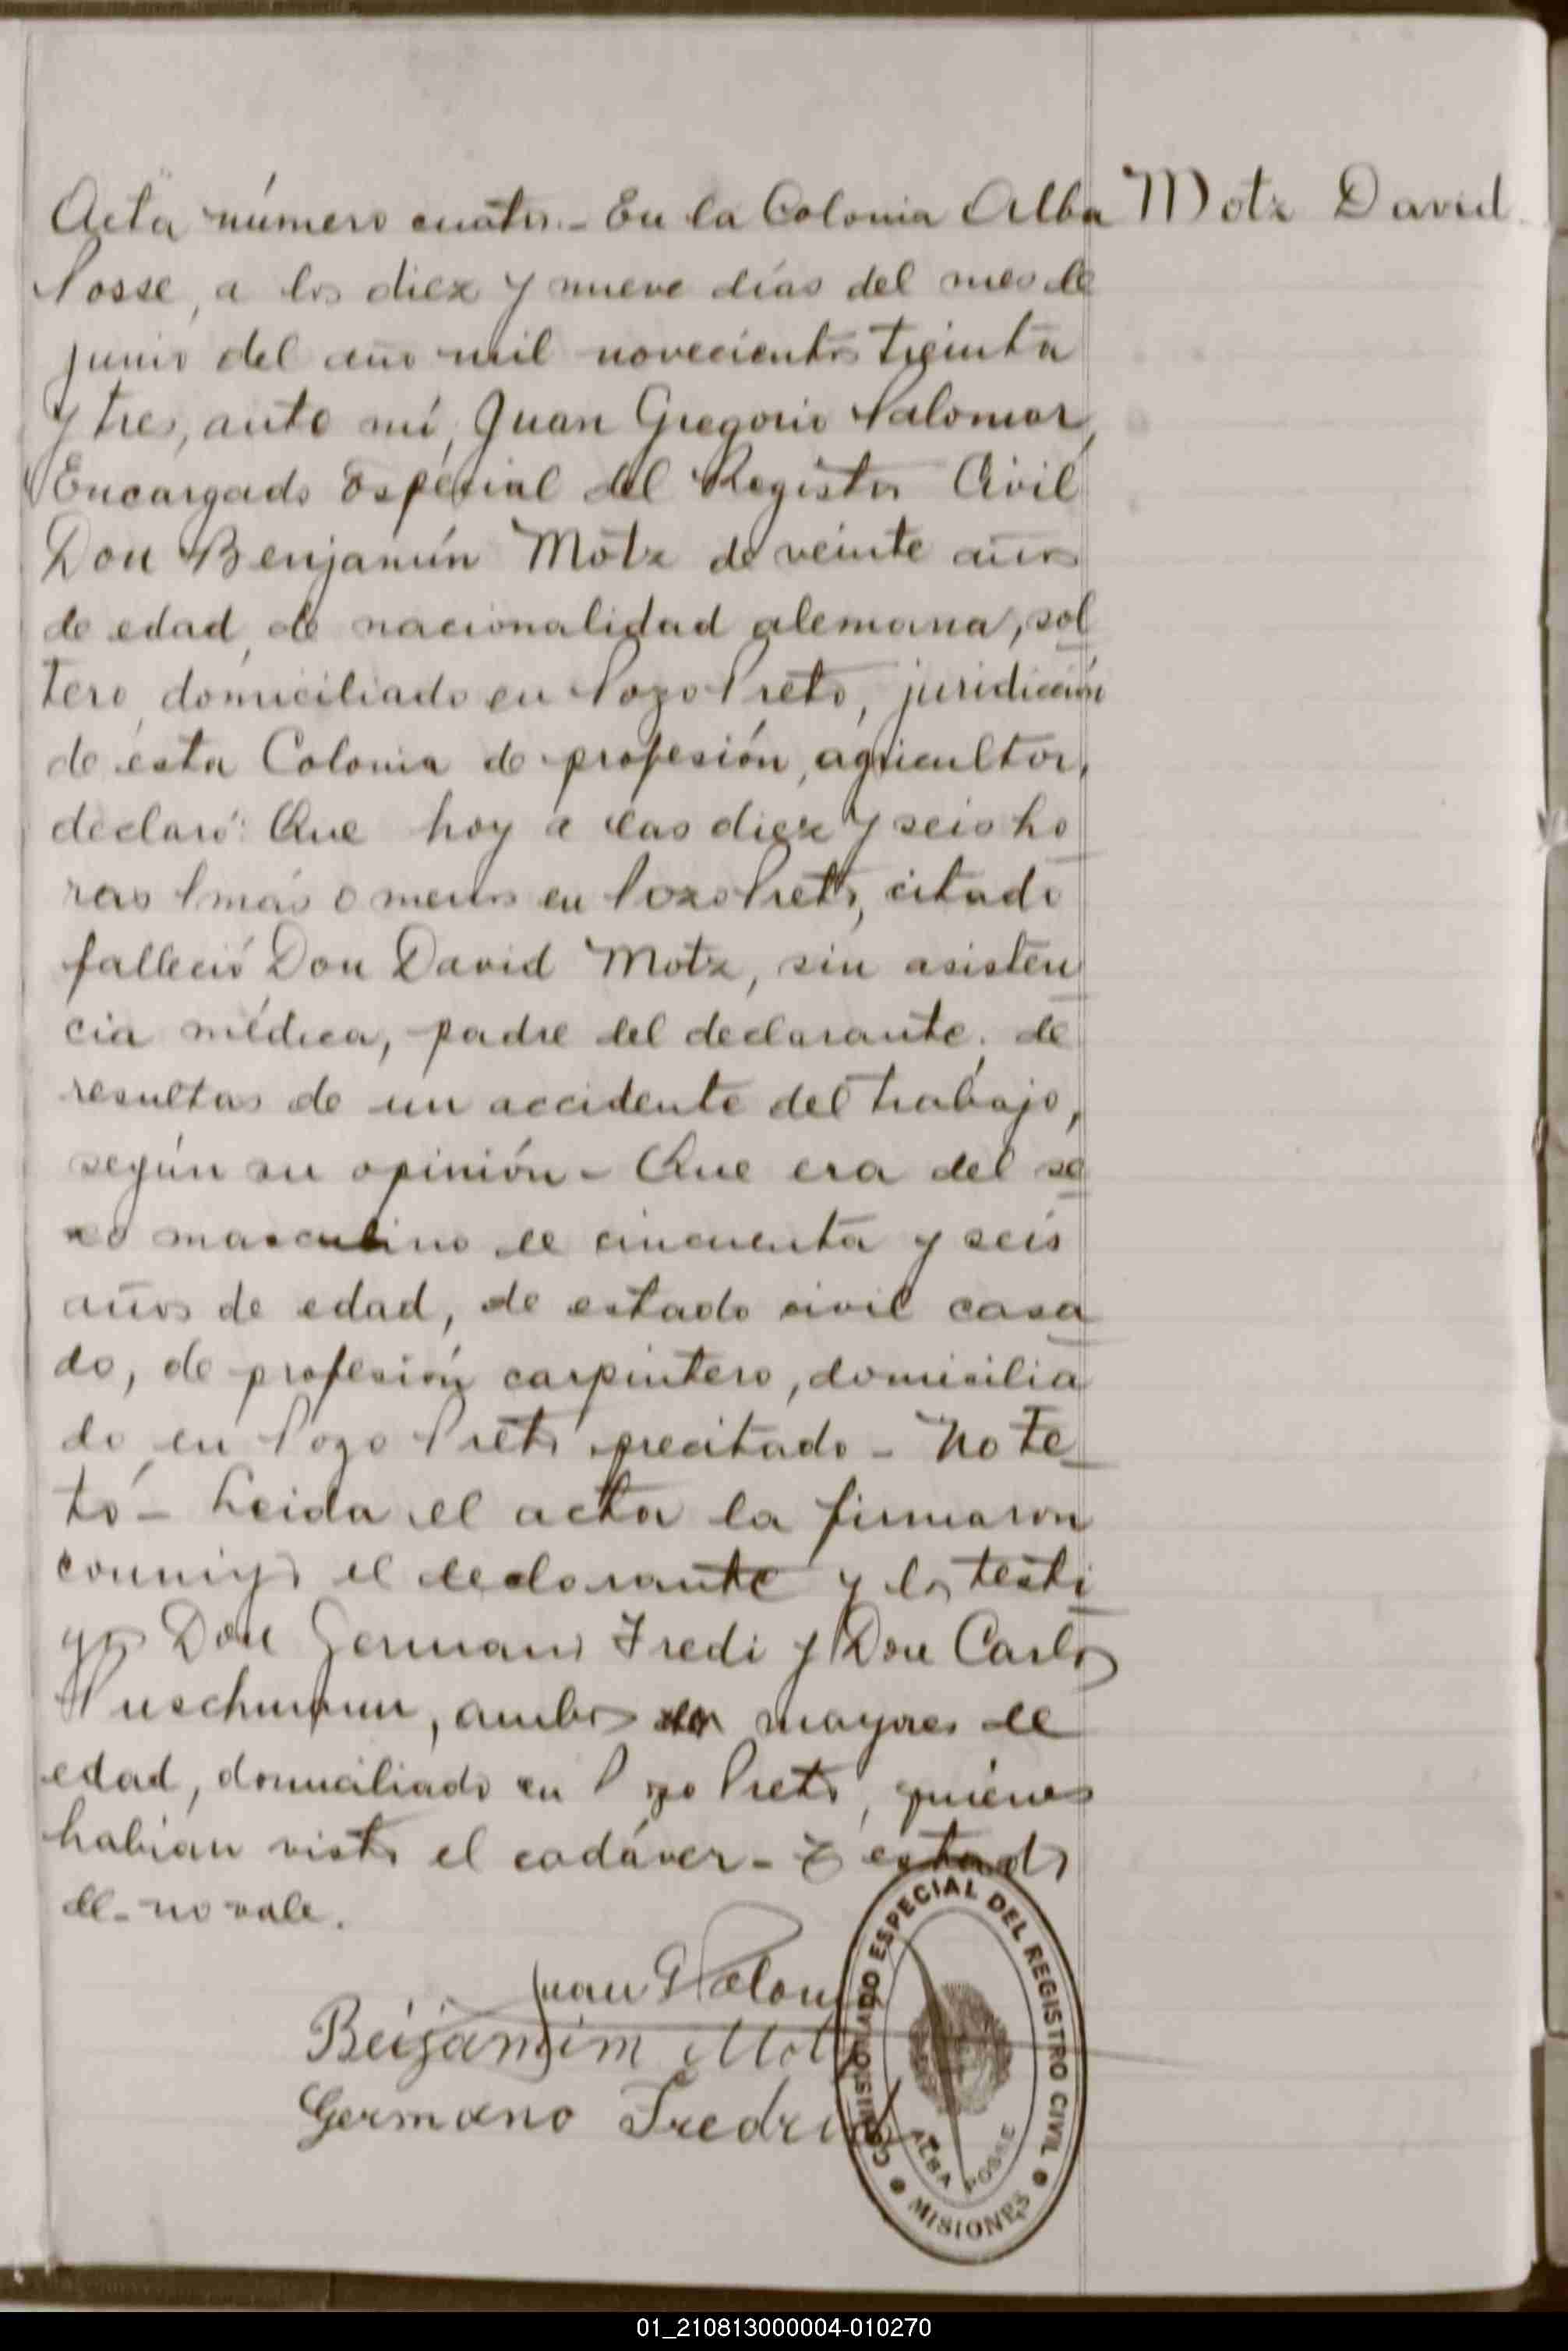 Acta número cuatro.- En la Colonia Alba
Motz David
Posse, a los diez y nueve días del mes de
junio del año mil novecientos treinta
y tres, ante mí, Juan Gregorio Palomar,
Encargado Especial del Registro Civil
Don Benjamín Motz de veinte años
de edad, de nacionalidad alemana, sol
tero, domiciliado en Pozo Preto, juridicción
de ésta Colonia de profesión, agricultor,
declaró: Que hoy a las diez y seis ho
ras más o menos en Pozo Preto, citado
falleció Don David Motz, sin asisten
cia médica, padre del declarante, de
resultas de un accidente del trabajo,
según su opinión - Que era del se
xo masculino de cincuenta y seis
años de edad, de estado civil casa
do, de profesión carpintero, domisilia
do en Pozo Preto precitado - No te-
tó - Leida el acta la firmaron
conmigo el declarante y los testi
gos Don Germano Fredi y Don Carlos
Puschmann, ambos mayores de
edad, domiciliado en Pozo Preto, quiénes
habían visto el cadáver -
de - no vale.
Juan G Palom
Beijamim Motz
Germano Fredri
COMISIONADO ESPECIAL DEL REGISTRO CIVIL
ALBA POSSE
MISIONES
01_210813000004-010270